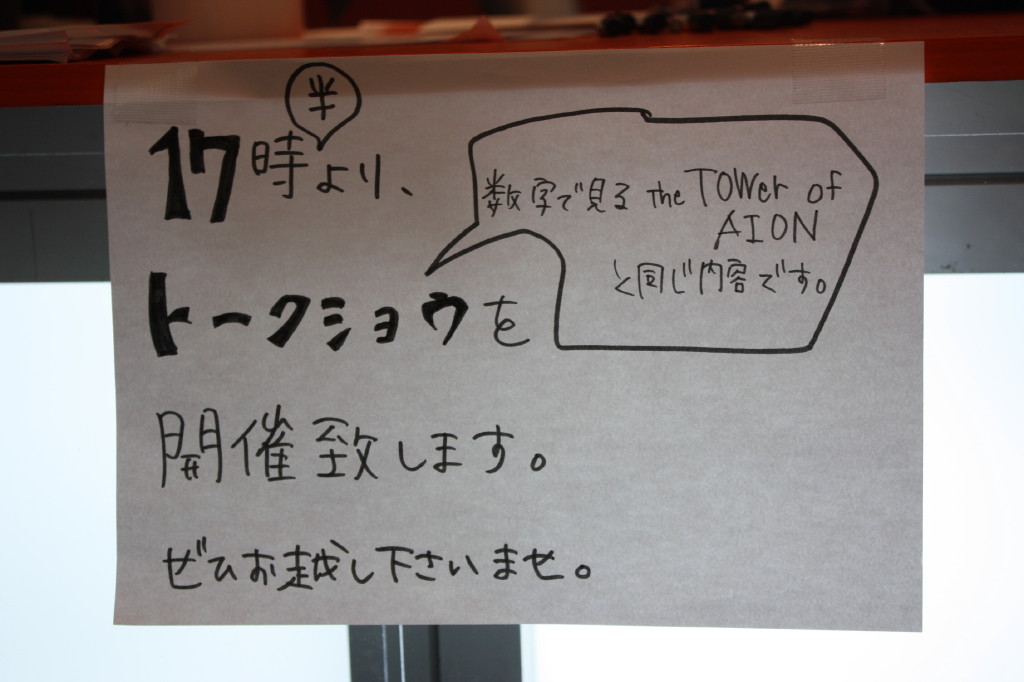 半
17時より、
数字で見る the TOWer of
AION
と同じ内容です。
トークショウを
開催致します。
ぜひお越し下さいませ。